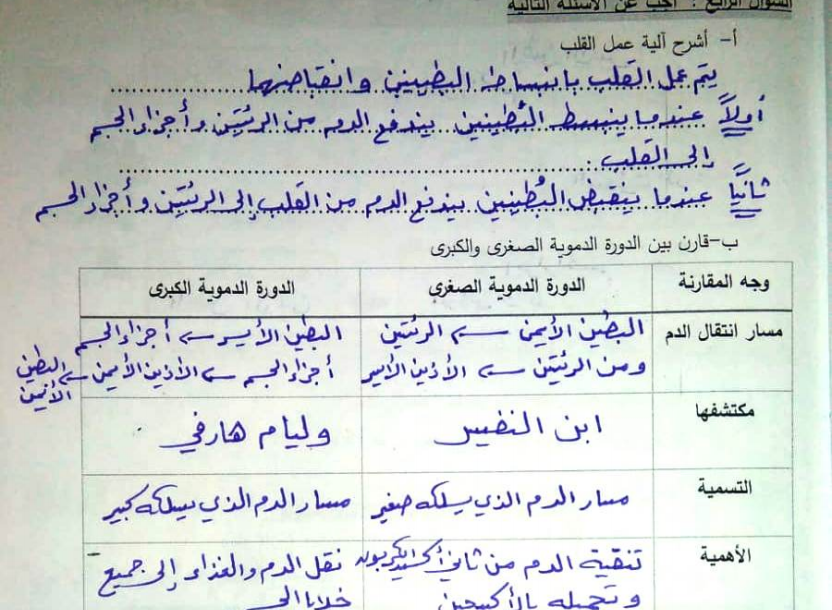 السؤال الرابع : أجب عن الأسئلة التالية
أ- أشرح آلية عمل القلب
يتم عمل القلب بانبساط البطينين وانقباضهما
أولاً عندما ينبسط البُطينين يندفع الدم من الرئتين وأجزاء الجسم
إلى القلب .
ثانياً عندما ينقبض البُطينين يندفع الدم من القلب إلى الرئتين وأجزاء الجسم
ب-قارن بين الدورة الدموية الصغرى والكبرى
وجه المقارنة الدورة الدموية الصغرى الدورة الدموية الكبرى
مسار انتقال الدم البطين الأيمن ← الرئتين البطين الأيسر ← أجزاء الجسم
ومن الرئتين ← الأذين الأيسر أجزاء الجسم ← الأذين الأيمن ← البطين الأيمن
مكتشفها ابن النفيس وليام هارفي
التسمية مسار الدم الذي يسلكه صغير مسار الدم الذي يسلكه كبير
الأهمية تنقية الدم من ثاني أكسيد الكربون نقل الدم والغذاء إلى جميع
وتحميله بالأكسجين خلايا